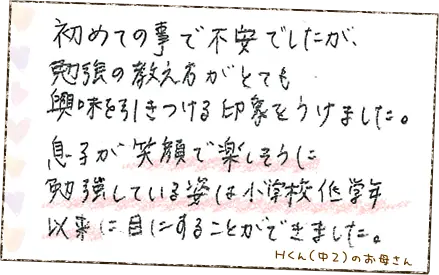 初めての事で不安でしたが、
勉強の教え方がとても
興味を引きつける印象をうけました。
息子が笑顔で楽しそうに
勉強している姿は小学校低学年
以来に目にすることができました。
Hくん(中2)のお母さん